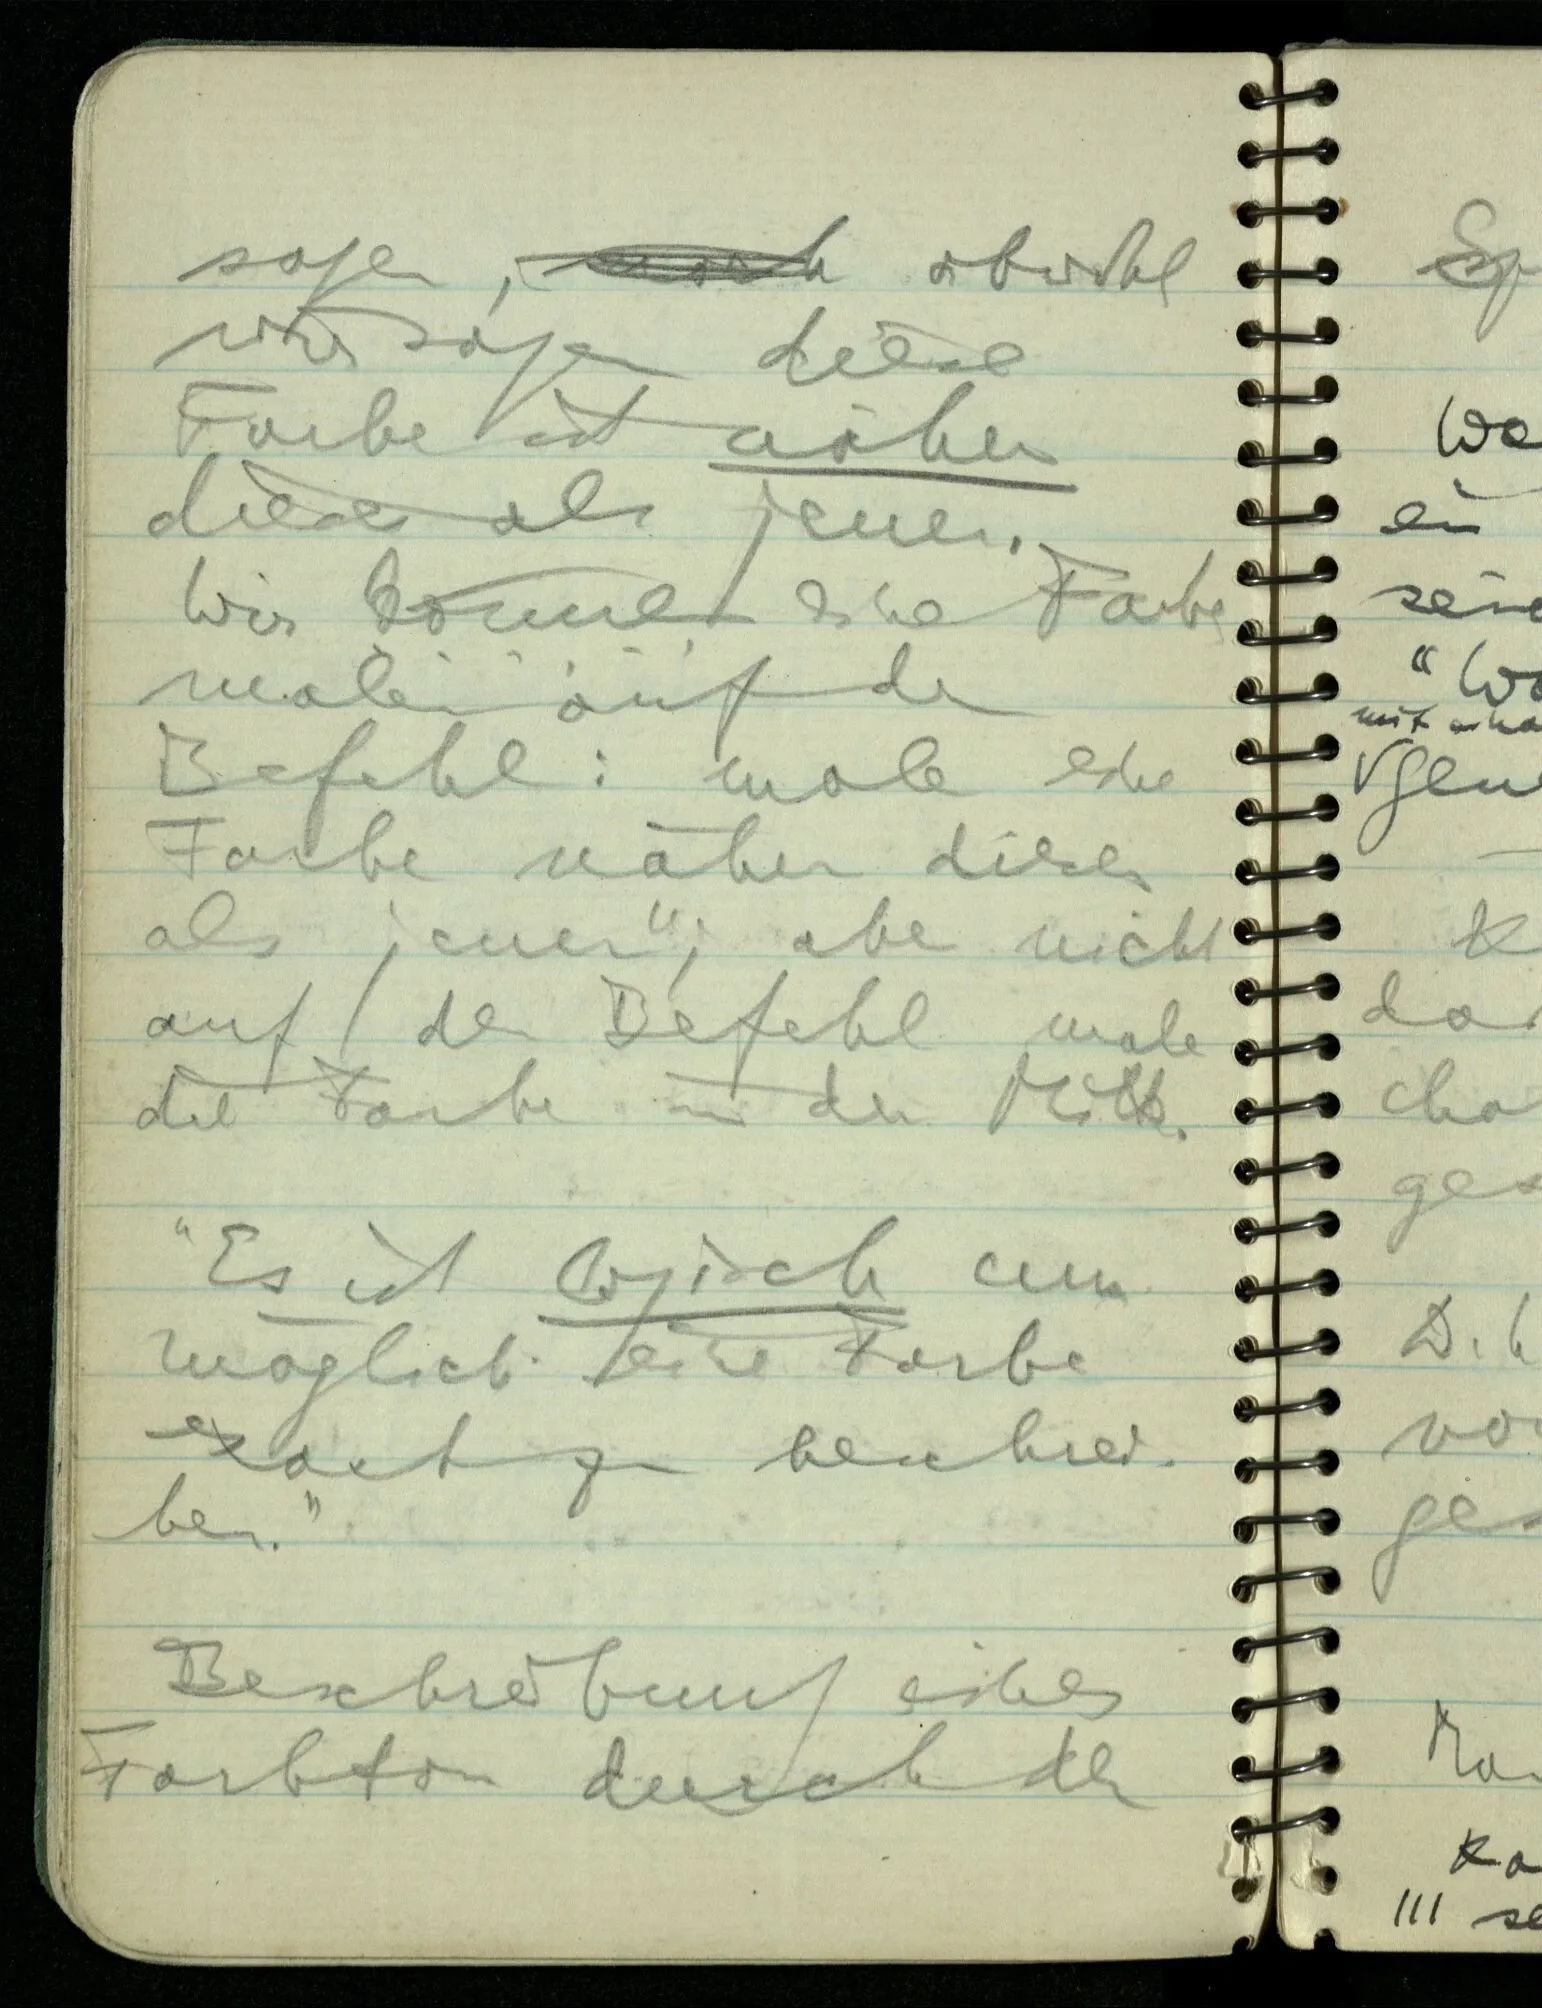 sagen, obwohl
wir sagen diese
Farbe ist näher
dieser als jener.
Wir können eine Farbe
malen auf den
Befehl: male eine
Farbe näher dieser
als jener"; aber nicht
auf den Befehl male
die Farbe in der Mitte.
"Es ist logisch un
möglich eine Farbe
exact zu beschrei-
ben."
Beschreibung eines
Farbton durch den
Sp
Wa
ein
seine
"Wa
mit
gen
K
dar
cha
ges
D.h
vor
ges
Man
Ka
||| se